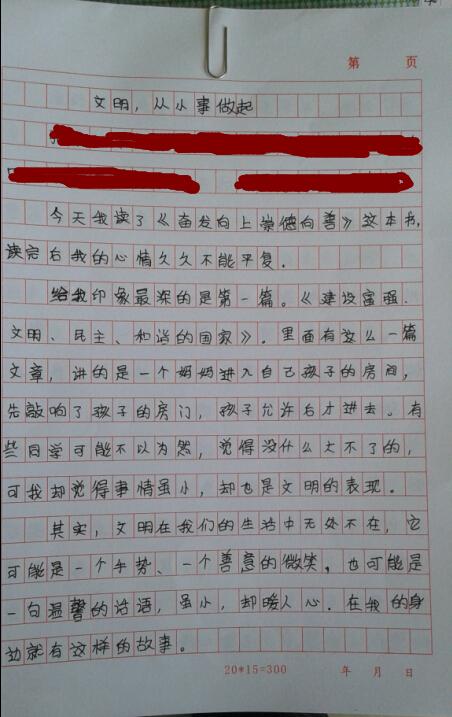 第 页
文明，从小事做起
今天我读了《奋发向上崇德向善》这本书，
读完后我的心情久久不能平复．
给我印象最深的是第一篇。《建设富强．
文明、民主、和谐的国家》．里面有这么一篇
文章，讲的是一个妈妈进入自己孩子的房间，
先敲响了孩子的房门，孩子允许后才进去。有
些同学可能不以为然，觉得没什么大不了的，
可我却觉得事情虽小，却也是文明的表现。
其实，文明在我们的生活中无处不在，它
可能是一个手势、一个善意的微笑，也可能是
一句温馨的话语，虽小，却暖人心．在我的身
边就有这样的故事。
20*15=300 年 月 日